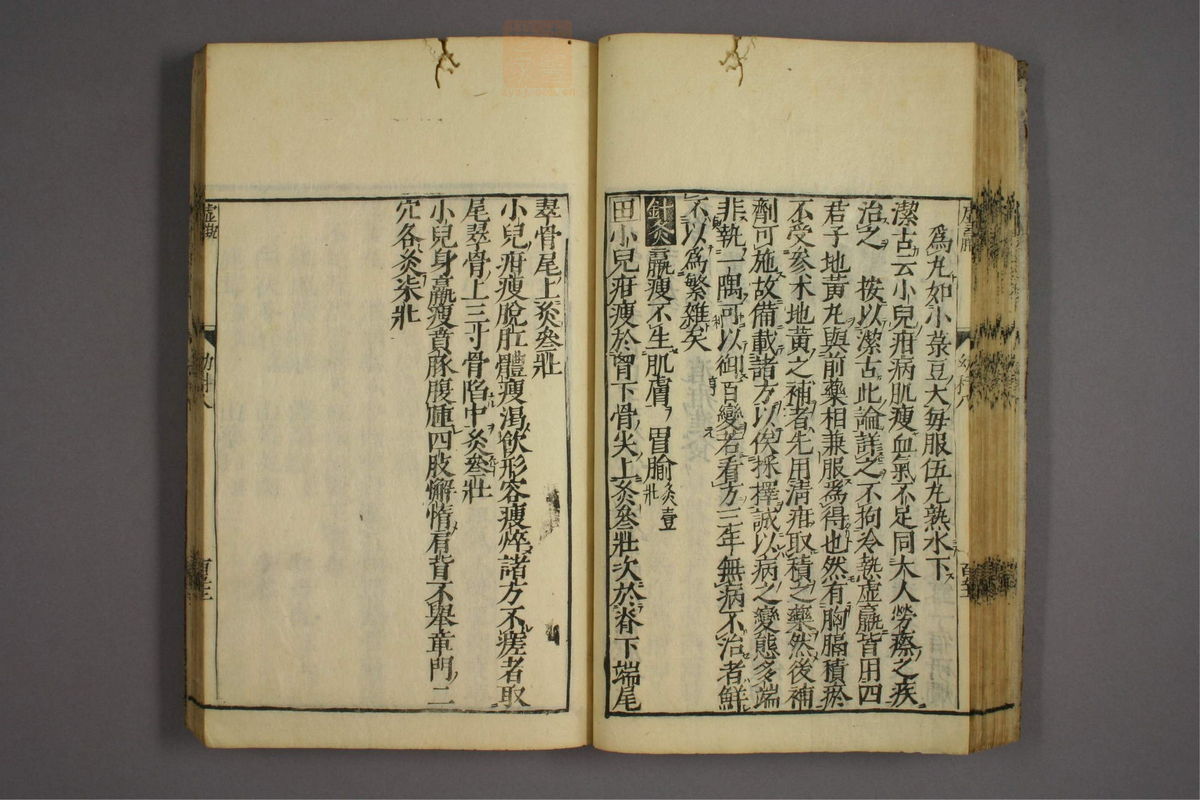 為丸如小菉豆大每服伍丸熟水下
潔古云小兒疳病肌瘦血氣不足同大人勞瘵之疾
治之 按以潔古此論詳之不拘冷熱虛羸皆用四
君子地黃丸與前藥相兼服為得也然有胸膈積瘀
不受參朮地黃之補者先用清疳取積之藥然後補
劑可施故備載諸方以俟採擇誠以病之變態多端
非執一隅可以御百變若看方三年無病不治者鮮
不以為繁雜矣
針灸羸瘦不生肌膚胃腧灸壹壯
田小兒疳瘦於胷下骨尖上灸叄壯次於脊下端尾
翠骨尾上灸叄壯
小兒疳瘦脫肛體瘦渴飲形容瘦瘁諸方不瘥者取
尾翠骨上三寸骨陷中灸叄壯
小兒身羸瘦賁豚腹腫四肢懈惰肩背不舉章門二
穴各灸柒壯
虛羸
幼科八